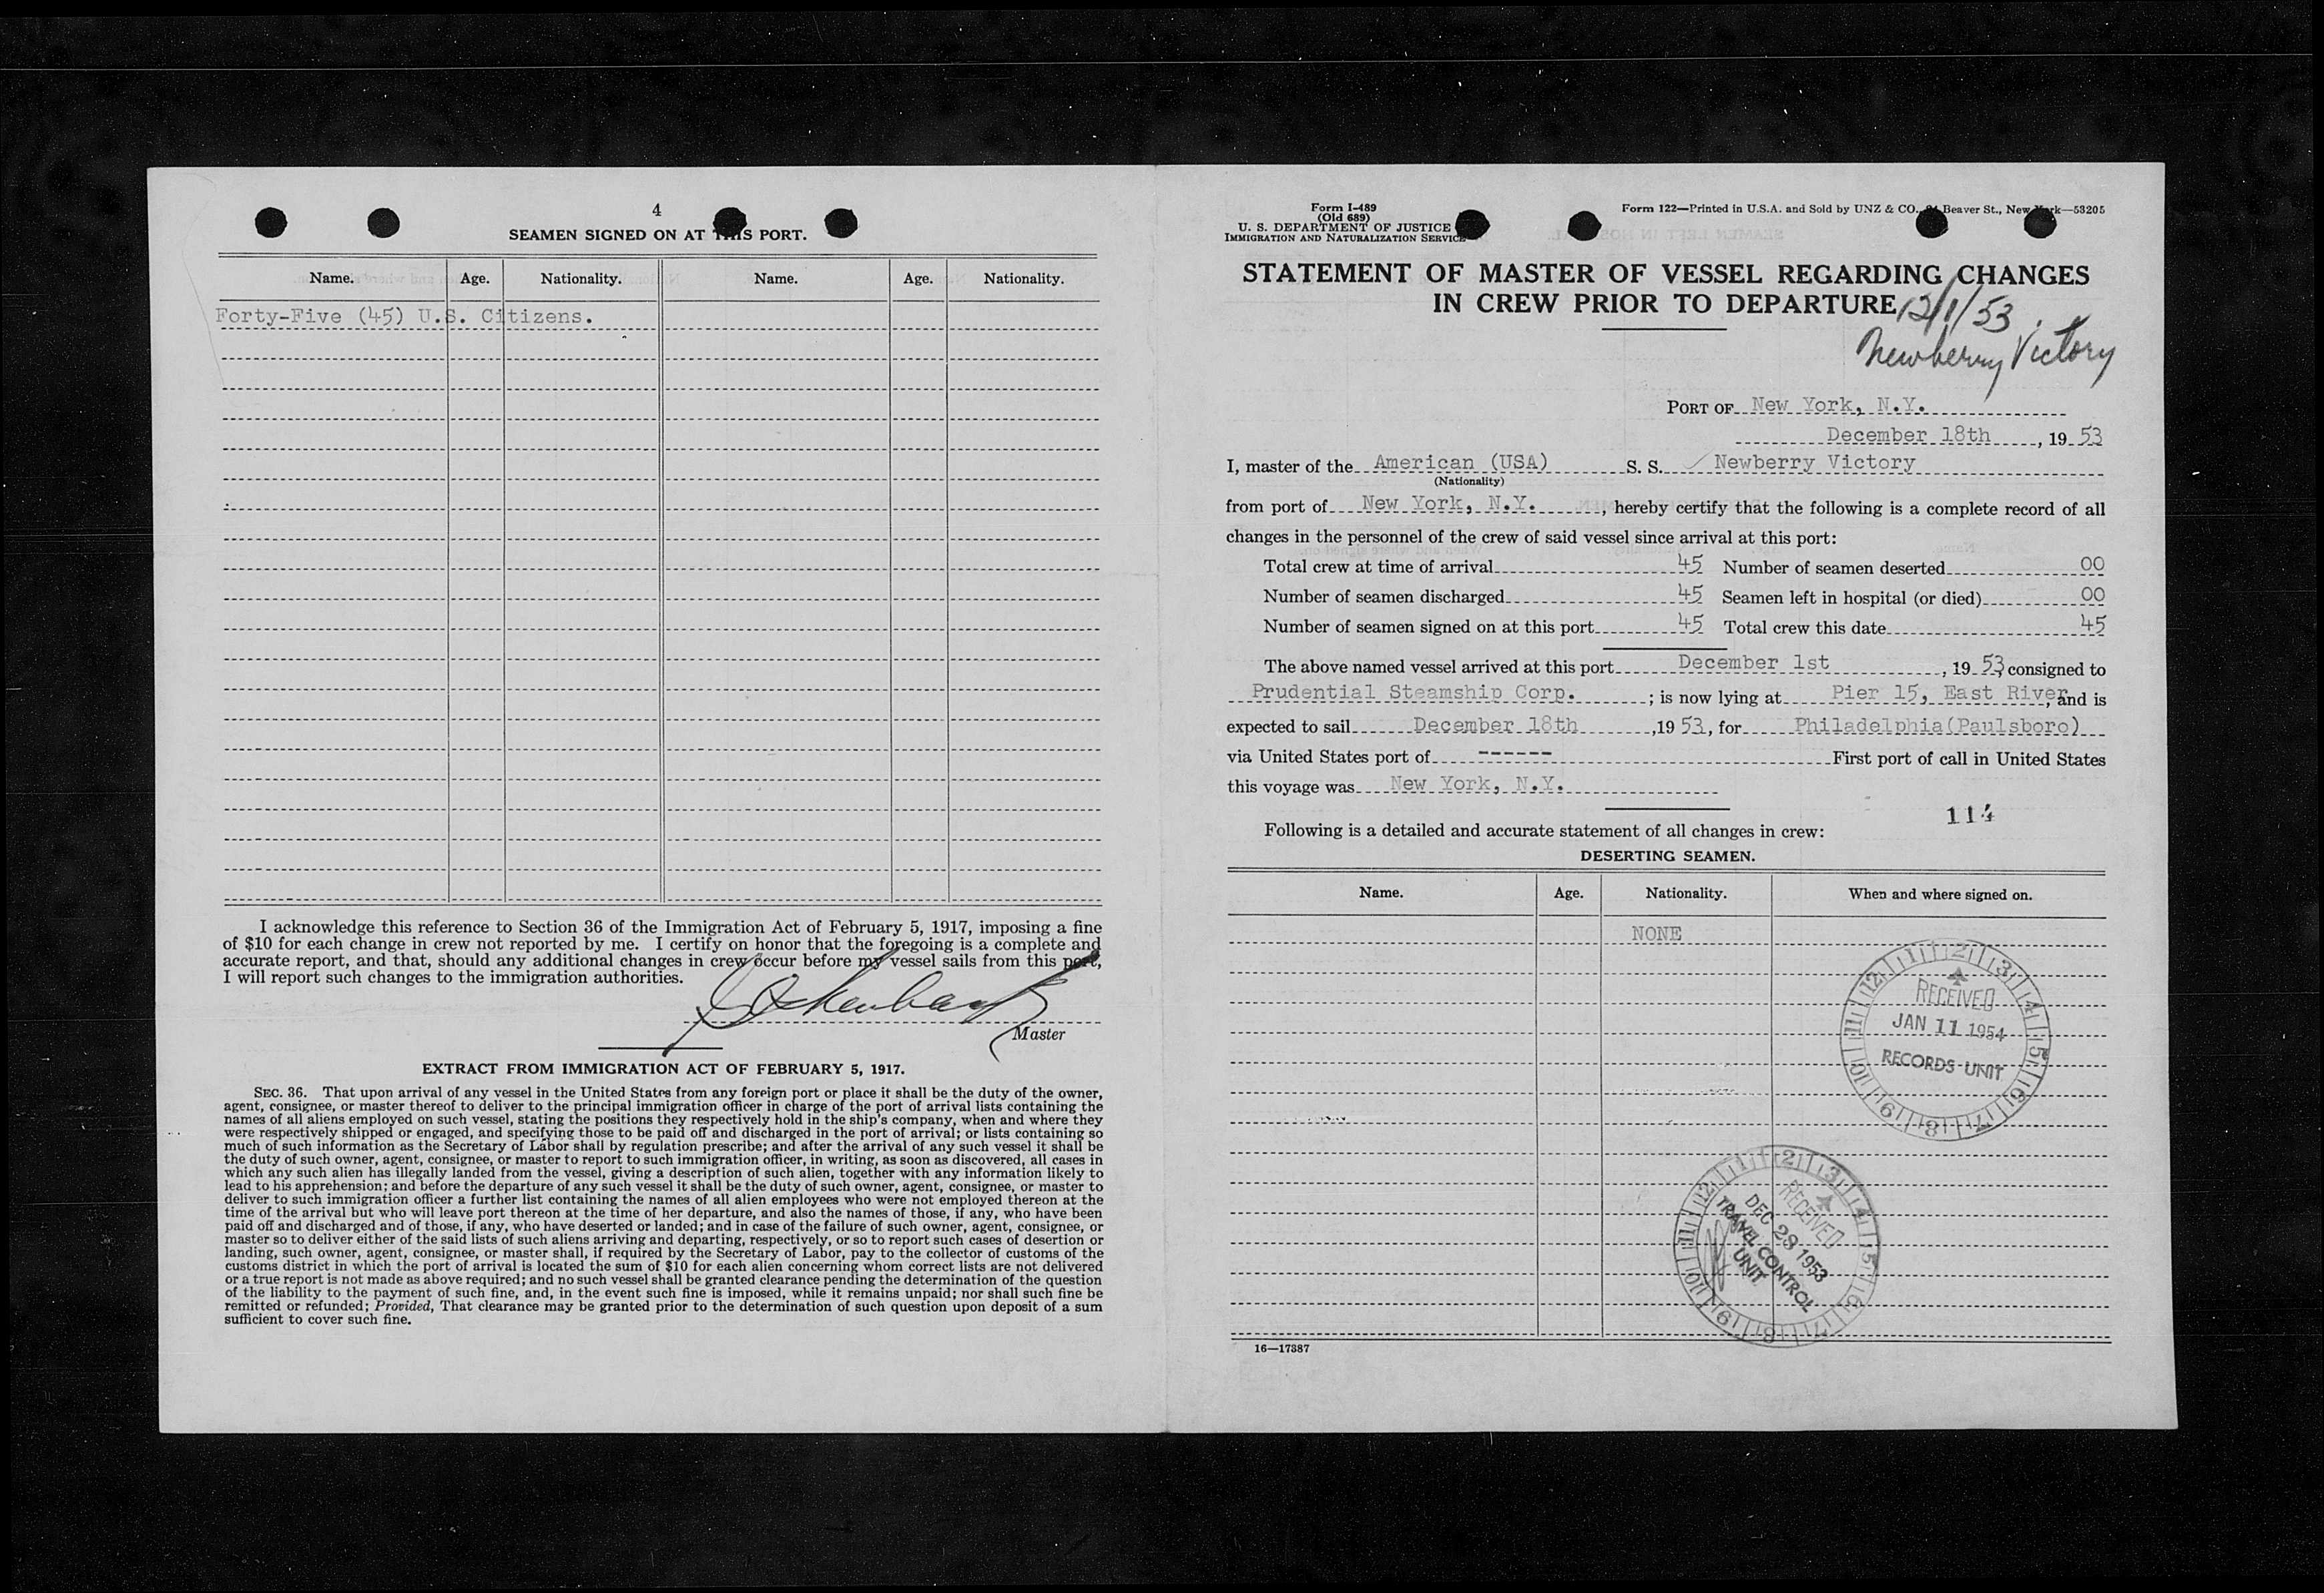 4
SEAMEN SIGNED ON AT THIS PORT.
Name. Age. Nationality. Name. Age. Nationality.
Forty-Five (45) U.S. Citizens.
I acknowledge this reference to Section 36 of the Immigration Act of February 5, 1917, imposing a fine
of $10 for each change in crew not reported by me. I certify on honor that the foregoing is a complete and
accurate report, and that, should any additional changes in crew occur before my vessel sails from this port,
I will report such changes to the immigration authorities.
Master
EXTRACT FROM IMMIGRATION ACT OF FEBRUARY 5, 1917.
SEC. 36. That upon arrival of any vessel in the United States from any foreign port or place it shall be the duty of the owner,
agent, consignee, or master thereof to deliver to the principal immigration officer in charge of the port of arrival lists containing the
names of all aliens employed on such vessel, stating the positions they respectively hold in the ship's company, when and where they
were respectively shipped or engaged, and specifying those to be paid off and discharged in the port of arrival; or lists containing so
much of such information as the Secretary of Labor shall by regulation prescribe; and after the arrival of any such vessel it shall be
the duty of such owner, agent, consignee, or master to report to such immigration officer, in writing, as soon as discovered, all cases in
which any such alien has illegally landed from the vessel, giving a description of such alien, together with any information likely to
lead to his apprehension; and before the departure of any such vessel it shall be the duty of such owner, agent, consignee, or master to
deliver to such immigration officer a further list containing the names of all alien employees who were not employed thereon at the
time of the arrival but who will leave port thereon at the time of her departure, and also the names of those, if any, who have been
paid off and discharged and of those, if any, who have deserted or landed; and in case of the failure of such owner, agent, consignee, or
master so to deliver either of the said lists of such aliens arriving and departing, respectively, or so to report such cases of desertion or
landing, such owner, agent, consignee, or master shall, if required by the Secretary of Labor, pay to the collector of customs of the
customs district in which the port of arrival is located the sum of $10 for each alien concerning whom correct lists are not delivered
or a true report is not made as above required; and no such vessel shall be granted clearance pending the determination of the question
of the liability to the payment of such fine, and, in the event such fine is imposed, while it remains unpaid; nor shall such fine be
remitted or refunded; Provided, That clearance may be granted prior to the determination of such question upon deposit of a sum
sufficient to cover such fine.
Form I-489
(Old 689)
U. S. DEPARTMENT OF JUSTICE
IMMIGRATION AND NATURALIZATION SERVICE
Form 122—Printed in U.S.A. and Sold by UNZ & CO., Beaver St., New York—53205
STATEMENT OF MASTER OF VESSEL REGARDING CHANGES
IN CREW PRIOR TO DEPARTURE
12/1/53
Newberry Victory
PORT OF New York, N.Y.
December 18th, 1953
I, master of the American (USA) S. S. Newberry Victory
(Nationality)
from port of New York, N.Y., hereby certify that the following is a complete record of all
changes in the personnel of the crew of said vessel since arrival at this port:
Total crew at time of arrival 45 Number of seamen deserted 00
Number of seamen discharged 45 Seamen left in hospital (or died) 00
Number of seamen signed on at this port 45 Total crew this date 45
The above named vessel arrived at this port December 1st, 1953, consigned to
Prudential Steamship Corp.; is now lying at Pier 15, East River, and is
expected to sail December 18th, 1953, for Philadelphia(Paulsboro)
via United States port of ------ First port of call in United States
this voyage was New York, N.Y.
114
Following is a detailed and accurate statement of all changes in crew:
DESERTING SEAMEN.
Name. Age. Nationality. When and where signed on.
NONE
12 1 2 3 4 5 6 7 8 9 10 11
RECEIVED
JAN 11 1954
RECORDS UNIT
12 1 2 3 4 5 6 7 8 9 10 11
RECEIVED
DEC 28 1953
TRAVEL CONTROL
UNIT
16—17887